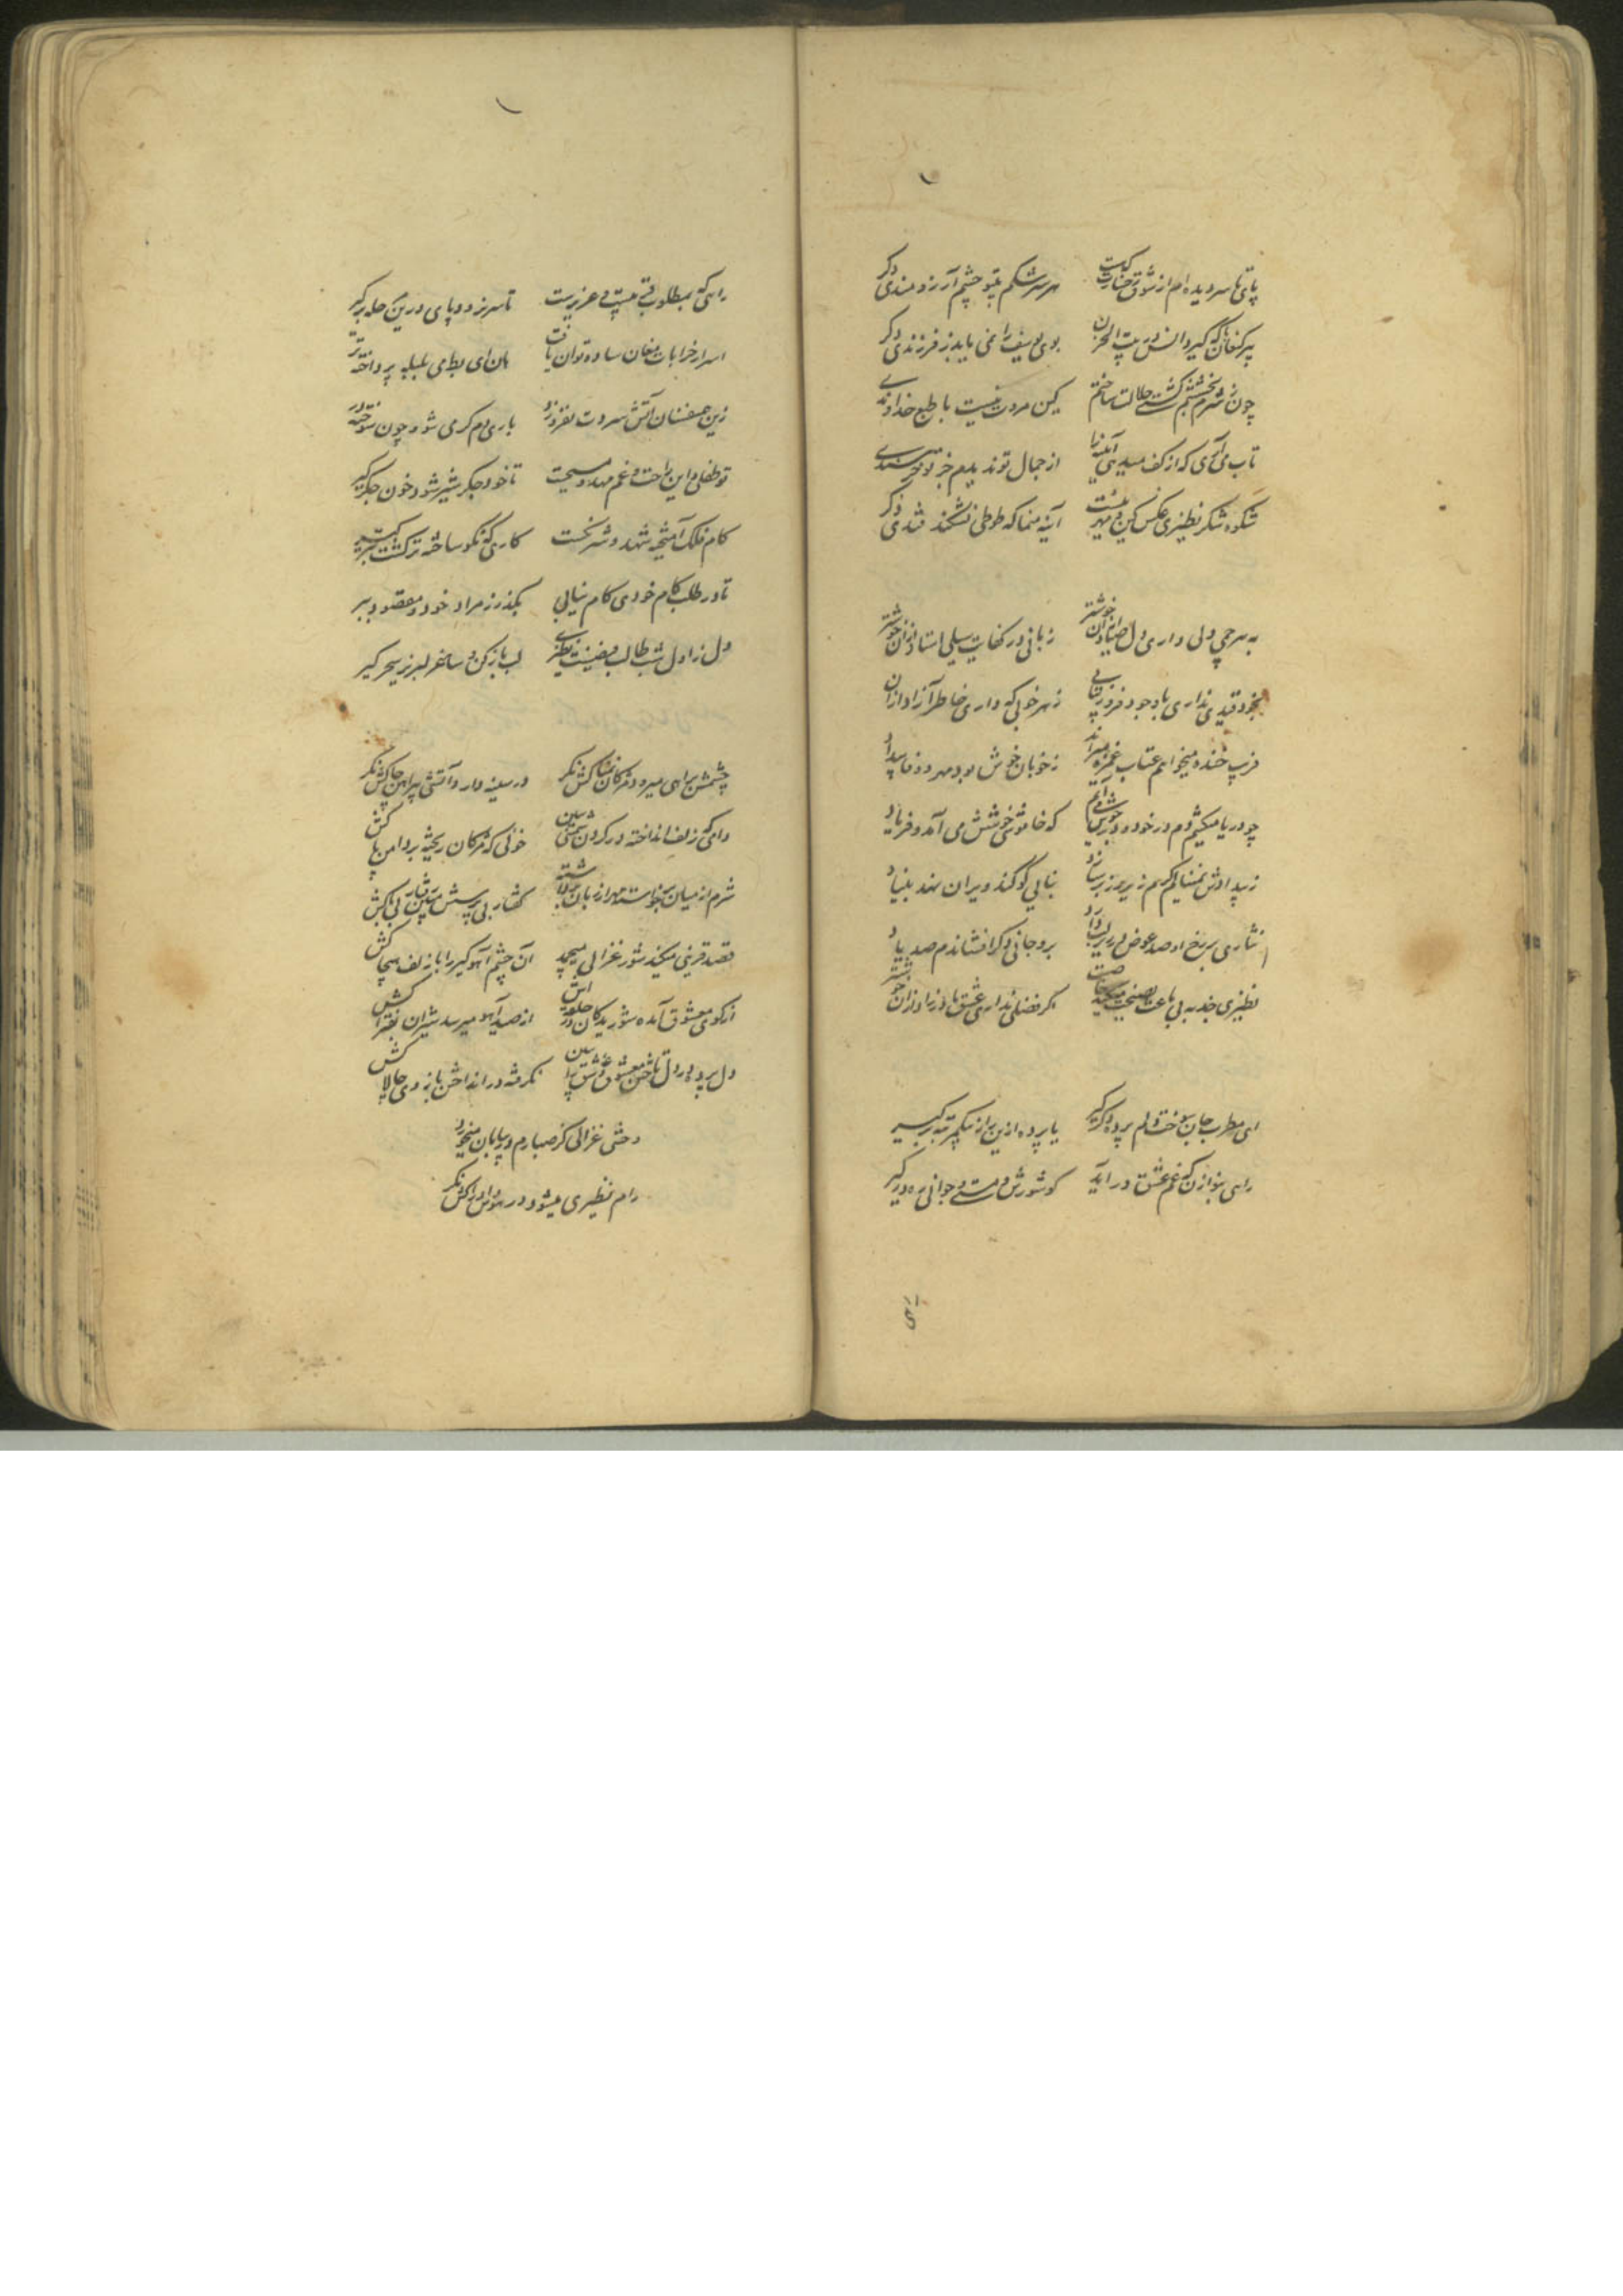 پای تا سر دیده ام از شوق رخسارت که هست هر سر اشکم بتو چشم آرزومندی دگر
پیر کنعان که گیرد انس در بیت الحزن بوی یوسف را نمی یابد ز فرزندی دگر
چون بخشم کشتی حلالت ساختم کین مروت نیست با طبع خداوندی دگر
تاب می آری که از کف میدهی آئینه را از جمال تو ندیدم جز تو خرسندی دگر
شکوه شکر نظیری عکس کین و مهر تست آینه منما که طوطی نشکند قندی دگر
به بیرحمی دلی داری دل صیاد ازان خوشتر زبانی در کفایت سیلی استاد ازان خوشتر
بخود قیدی نداری با وجود فر و زیبایی ز هر خوبی که داری خاطر آزاد ازان
فریب خنده میخواهم عتاب غمزه میراند ز خوبان خوش بود مهر و وفا بیداد
چو دریا میکشم دم در خود و در جوش می آیم که خاموشی خوشش می آمد و فریاد
ز بیدادش نمینالم گرم زیر و زبر سازد بنایی کو کند ویران نهد بنیاد
نثاری بر رخ او صد عوض در زیر لب دارد برو جانی دگر افشاندم صد یاد
نظیری جذبه بی باعث نصیحت میکند خاصت اگر فضلی نداری عشق مادرزاد ازان خوشتر
ای مطرب جان سوخت دلم پرده دگر گیر یا پرده ازین راز بیکمرتبه برگیر
راهی بنوا زن که غم عشق در آید کو شورش و مستی و جوانی ره در گیر
راهی
راهی که بمطلوب بری نیست عزیزست تا سر نرود پای درین مرحله برگیر
اسرار خرابات مغان ساده توان یافت هان ای بط می بلبله پرداخته تر
زین همنفسان آتش سردت نفروزد باری دم گرمی شو و چون سوخته در
تو طفلی و این راحت و غم مهد مسیحت تا خود جگر شیر شود خون جگر گیر
کام فلک آمیخته شهد و شرنگست کاری که نکو ساخته تر گشت بتر گیر
تا در طلب کام خودی کام نیابی بگذر ز مراد خود و مقصود ببر
دل ز اول شب طالب فیضیست نظیری لب باز کن و ساغر لبریز سحر گیر
چشمش براهی میرود مژگان نمناکش نگر در سینه دارد آتشی پیراهن چاکش نگر
دامی که زلف انداخته در گردن سیمین خونی که مژگان ریخته بر دامن پاکش
شرم از میان برخاسته مهر از زبان برداشته گفتار بی ترسش ببین رفتار بی باکش
قصد قرینی میکند شور غزالی میچمد آن چشم آهوگیر را با زلف پیچاکش
از کوی معشوق آمده شوریدگان در حلقه اش از صید آهو میرسد شیران بفتراکش
دل برده در دل باختن معشوق عاشق پیشه بین نگرفته در انداختن بازوی چالاکش
وحشی غزالی کز صبا رم در بیابان میخورد
رام نظیری میشود در هوش و ادراکش نگر